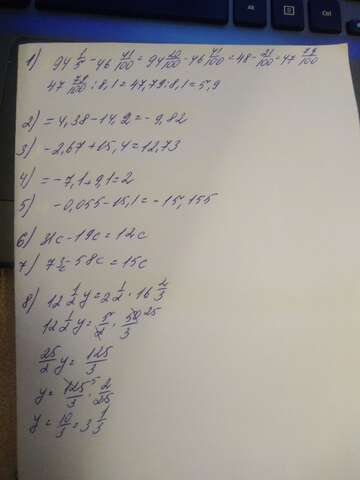 1) 94 1/5 - 46 41/100 = 94 20/100 - 46 41/100 = 48 - 21/100 = 47 79/100
47 79/100 : 8,1 = 47,79 : 8,1 = 5,9
2) = 4,38 - 14,2 = -9,82
3) -2,67 + 15,4 = 12,73
4) = -7,1 + 9,1 = 2
5) -0,055 - 15,1 = -15,155
6) 31c - 19c = 12c
7) 73c - 58c = 15c
8) 12 1/2 y = 2 1/2 · 16 2/3
12 1/2 y = 5/2 · 50/3 25
25/2 y = 125/3
y = 125/3 5 · 2/25
y = 10/3 = 3 1/3